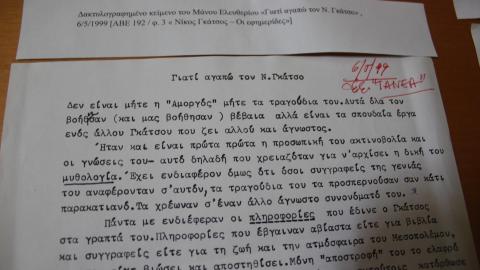 Δακτυλογραφημένο κείμενο του Μάνου Ελευθερίου «Γιατί αγαπώ τον Ν. Γκάτσο» ,
6/5/1999 [ΑΒΕ 192 / φ. 3 « Νίκος Γκάτσος – Οι εφημερίδες»]
6/5/99
"ΤΑΝΕΑ"
Γιατί αγαπώ τον Ν.Γκάτσο
Δεν είναι μήτε η "Αμοργός" μήτε τα τραγούδια του.Αυτά όλα τον
βοήθησαν (και μας βοήθησαν ) βέβαια αλλά είναι τα σπουδαία έργα
ενός άλλου Γκάτσου που ζει αλλού και άγνωστος.
Ήταν και είναι πρώτα πρώτα η προσωπική του ακτινοβολία και
οι γνώσεις του- αυτό δηλαδή που χρειαζόταν για ν'αρχίσει η δική του
μυθολογία. Έχει ενδιαφέρον όμως ότι όσοι συγγραφείς της γενιάς
του αναφέρονταν σ'αυτόν,τα τραγούδια του τα προσπερνούσαν σαν κάτι
παρακατιανό.Τα χρέωναν σ'έναν άλλο άγνωστο συνονόματό του.
Πάντα με ενδιέφεραν οι πληροφορίες που έδινε ο Γκάτσος
στα γραπτά του.Πληροφορίες που έβγαιναν αβίαστα είτε για βιβλία
και συγγραφείς είτε για τη ζωή και την ατμόσφαιρα του Μεσοπολέμου,
βιώσει και αποστηθίσει.Μόνη "αποστροφή" του το ελαφρό
κατόρθωσε